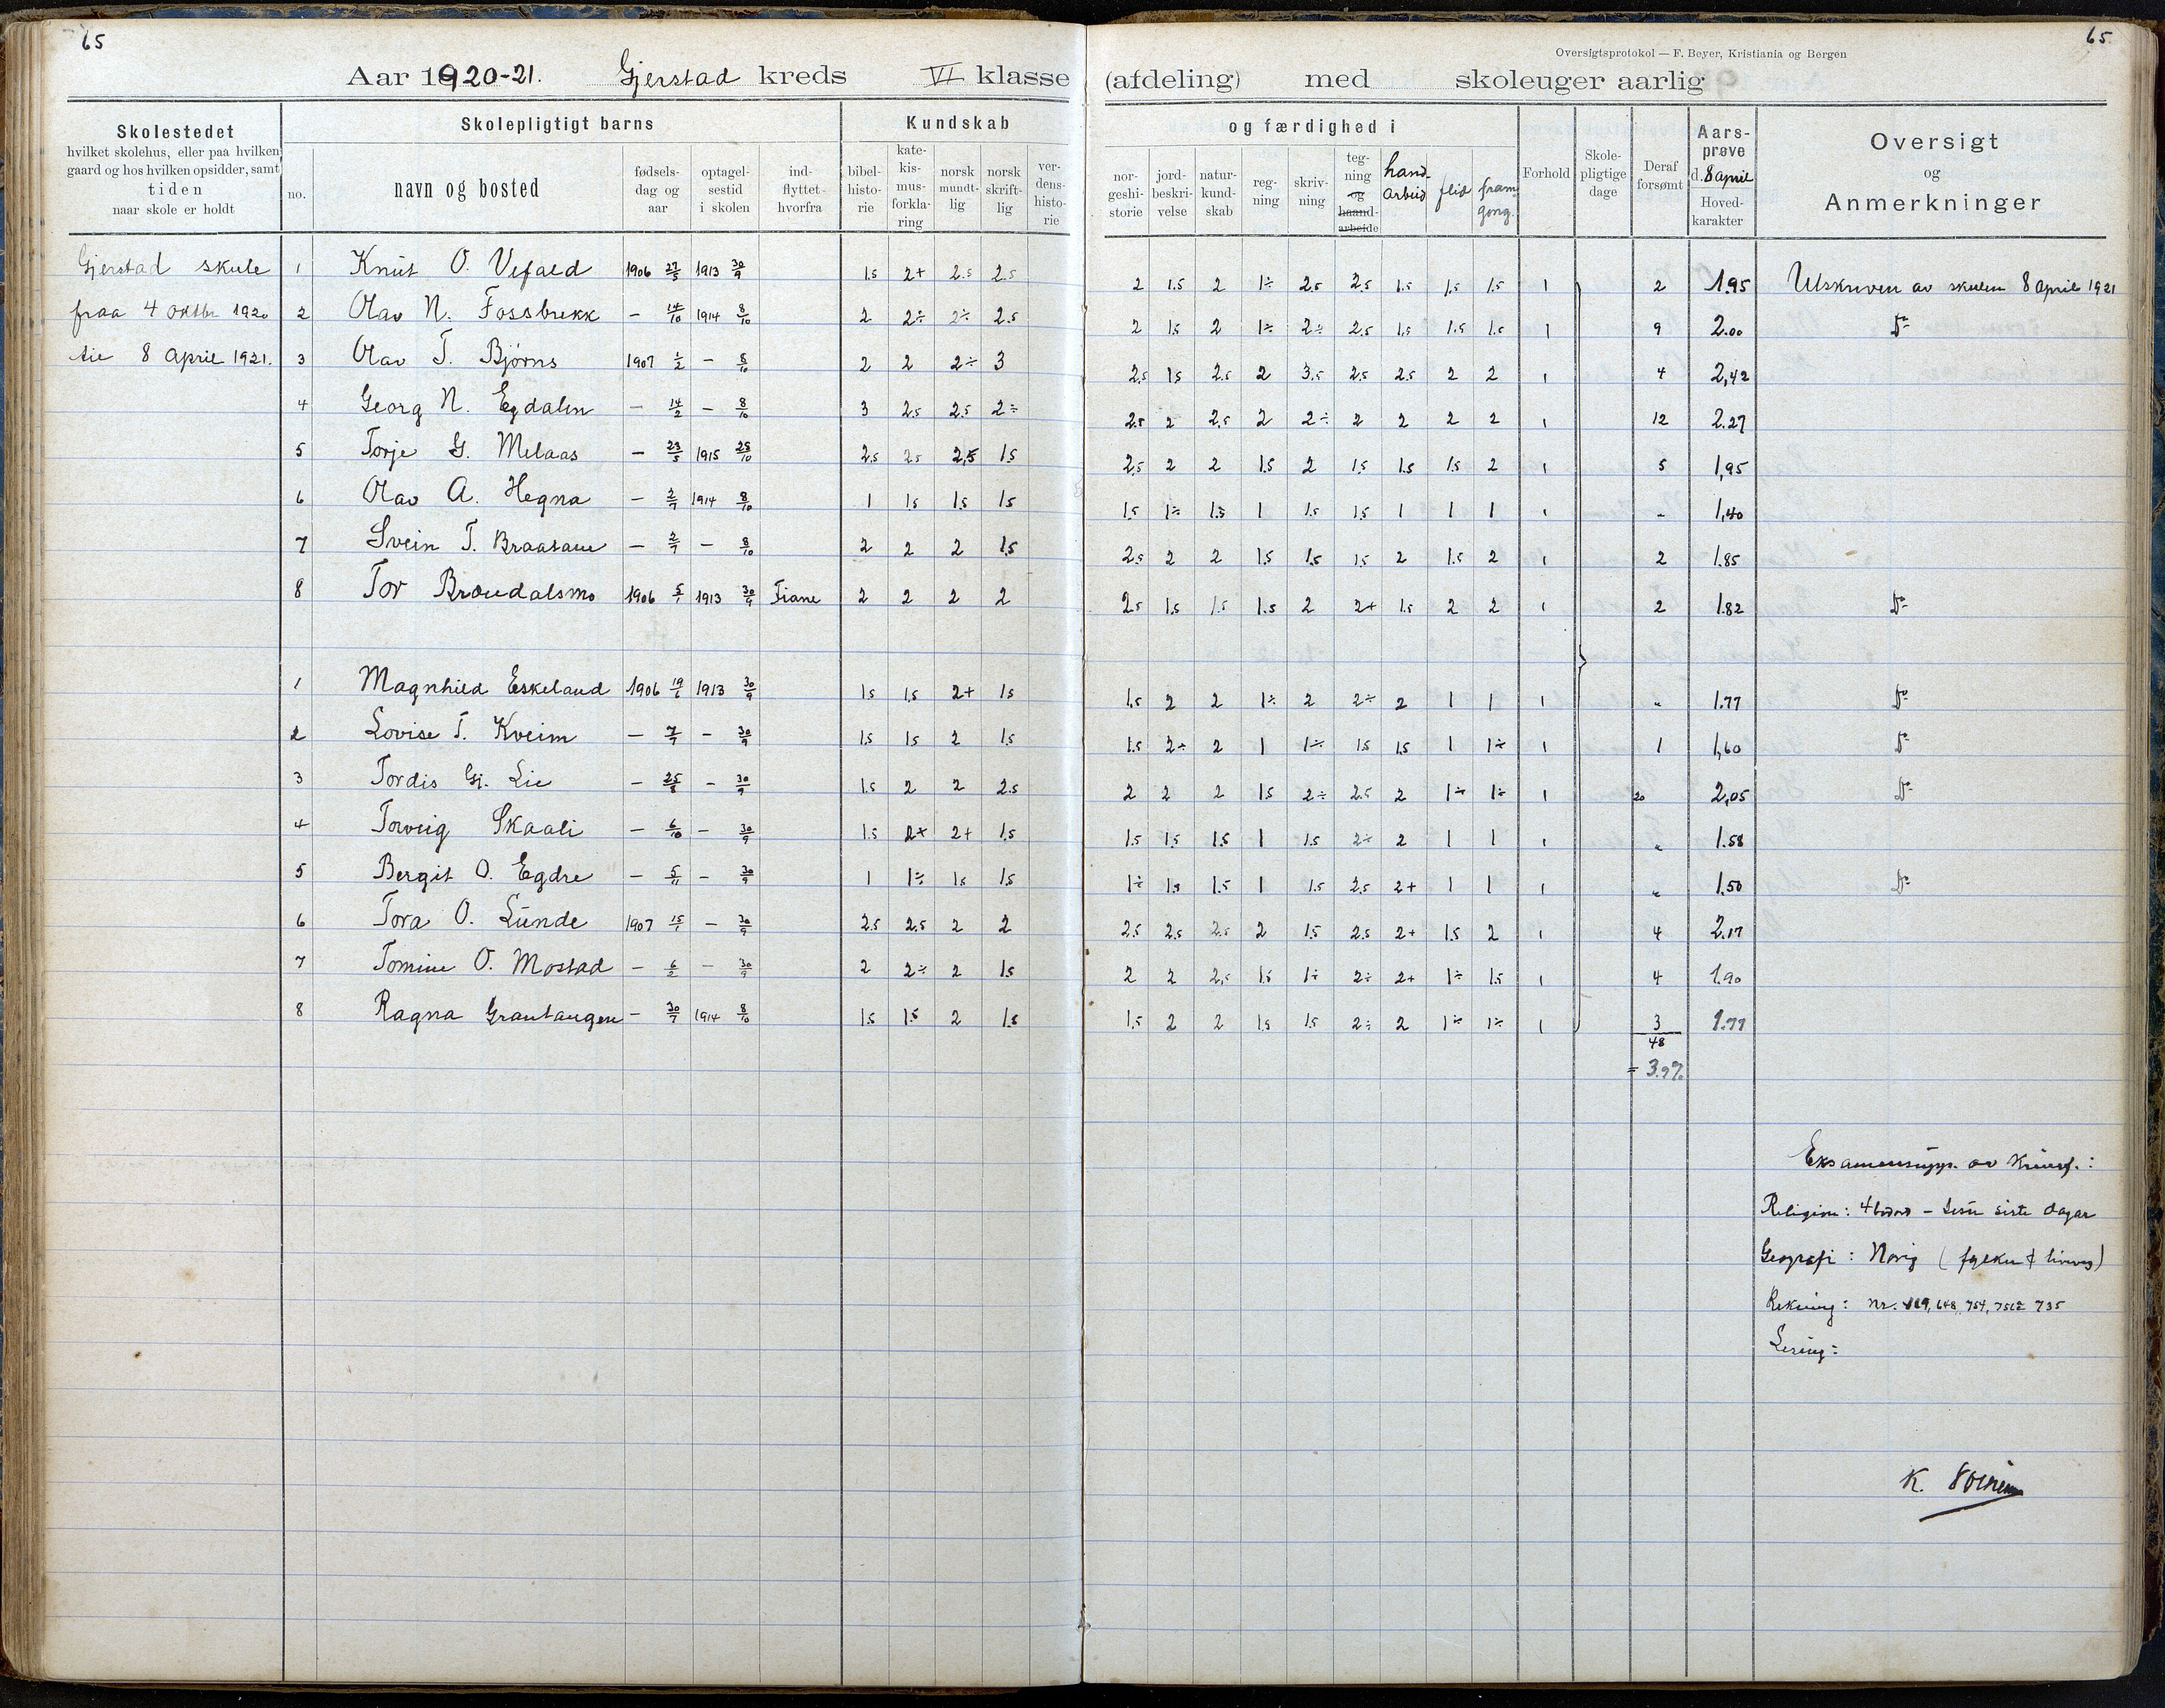 65
65
Oversigtsprotokol — F. Beyer, Kristiania og Bergen
Aar 1920-21. Gjerstad kreds VI klasse (afdeling) med skoleuger aarlig
Skolestedet
hvilket skolehus, eller paa hvilken
gaard og hos hvilken opsidder, samt
tiden
naar skole er holdt
Skolepligtigt barns
no.
navn og bosted
fødsels-
dag og
aar
optagel-
sestid
i skolen
ind-
flyttet-
hvorfra
Kundskab
bibel-
histo-
rie
kate-
kis-
mus-
forkla-
ring
norsk
mundt-
lig
norsk
skrift-
lig
ver-
dens-
histo-
rie
og færdighed i
nor-
geshi-
storie
jord-
beskri-
velse
natur-
kund-
skab
reg-
ning
skriv-
ning
teg-
ning
og
haand-
arbeide
hand-
arbeid
flid
fram-
gong.
Forhold
Skole-
pligtige
dage
Deraf
forsømt
Aars-
prøve
d. 8 april
Hoved-
karakter
Oversigt
og
Anmerkninger
Gjerstad skule
fraa 4 oktbr 1920
til 8 April 1921.
1 Knut O. Vefald 1906 27/5 1913 30/9 1.5 2+ 2.5 2.5 2 1.5 2 1÷ 2.5 2.5 1.5 1.5 1.5 1 2 1.95 Utskriven av skulen 8 april 1921
2 Olav N. Fossbrekk — 14/10 1914 8/10 2 2÷ 2÷ 2.5 2 1.5 2 1÷ 2÷ 2.5 1.5 1.5 1.5 1 9 2.00 Do
3 Olav T. Bjørns 1907 1/2 — 8/10 2 2 2÷ 3 2.5 1.5 2.5 2 3.5 2.5 2.5 2 2 1 4 2,42
4 Georg N. Egdalen — 14/2 — 8/10 3 2.5 2.5 2÷ 2.5 2 2.5 2 2÷ 2 2 2 2 1 12 2.27
5 Torje G. Melaas — 23/5 1915 25/10 2.5 2.5 2,5 1.5 2.5 2 2 1.5 2 1.5 1.5 1.5 2 1 5 1,95
6 Olav A. Hegna — 2/7 1914 8/10 1 1.5 1.5 1.5 1.5 1÷ 1.5 1 1.5 1.5 1 1 1 1 " 1,40
7 Svein T. Braatane — 2/7 — 8/10 2 2 2 1.5 2.5 2 2 1.5 1.5 1.5 2 1.5 2 1 2 1.85
8 Tor Brøudalsmo 1906 5/1 1913 30/9 Fiane 2 2 2 2 2.5 1.5 1.5 1.5 2 2+ 1.5 2 2 1 2 1.82 Do
1 Magnhild Eskeland 1906 19/1 1913 30/9 1.5 1.5 2+ 1.5 1.5 2 2 1÷ 2 2÷ 2 1 1 1 " 1.77 Do
2 Lovise T. Kveim — 7/7 — 30/9 1.5 1.5 2 1.5 1.5 2÷ 2 1 1÷ 1.5 1.5 1 1÷ 1 1 1,60 Do
3 Tordis Gj. Lie — 25/8 — 30/9 1.5 2 2 2.5 2 2 2 1.5 2÷ 2.5 2 1÷ 1÷ 1 20 2,05 Do
4 Torveig Skaali — 6/10 — 30/9 1.5 2+ 2+ 1.5 1.5 1.5 1.5 1 1.5 2÷ 2 1 1 1 " 1.58
5 Bergit O. Egdre — 5/11 — 30/9 1 1÷ 1.5 1.5 1÷ 1.5 1.5 1 1.5 2.5 2+ 1 1 1 " 1.50 Do
6 Tora O. Lunde 1907 15/1 — 30/9 2.5 2.5 2 2 2.5 2.5 2.5 2 1.5 2.5 2+ 1.5 2 1 4 2.17
7 Tomine O. Mostad — 6/2 — 30/9 2 2÷ 2 1.5 2 2 2,5 1.5 1÷ 2÷ 2+ 1÷ 1.5 1 4 1.90
8 Ragna Grautaugen — 30/7 1914 8/10 1.5 1.5 2 1.5 1.5 2 2 1.5 1.5 2÷ 2 1÷ 1÷ 1 3 1.77
48
= 3.9%
Eksamensuppg. av
Religion: 4 bodord – Jesu siste dagar
Geografi: Norig
Rekning: nr. 648, 754, 735
Lesing:
K.